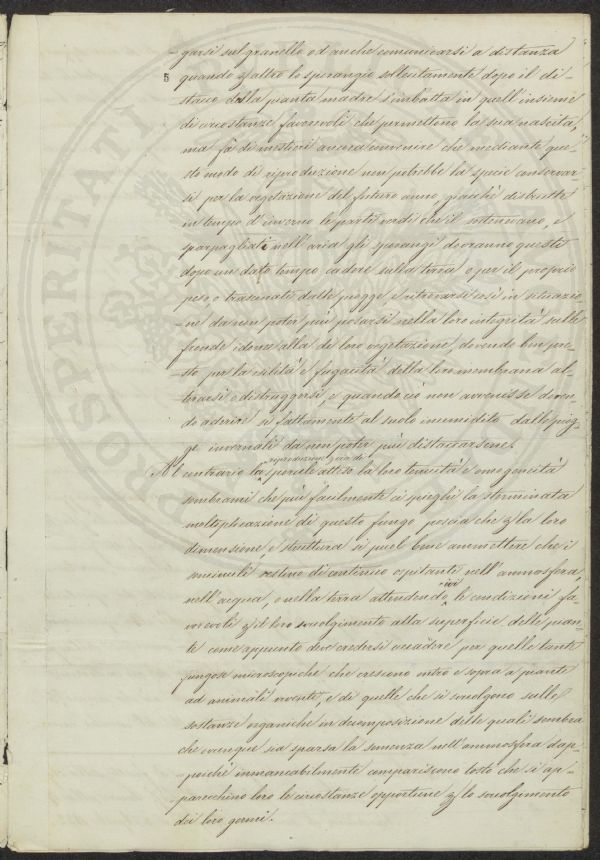 garsi sul granello od anche comunicarsi a distanza
5 quando p altro lo sporangio sollecitamente dopo il di-
stacco dalla pianta madre s'imbatta in quell'insieme
di circostanze favorevoli che permettono la sua nascita,
ma fà di mestieri ancora convenire che mediante que-
sto modo di riproduzione non potrebbe la specie conservar-
si per la vegetazione del futuro anno, giacchè distrutte
in tempo d'inverno le parti verdi che il sostenevano, e
sparpagliati nell'aria gli sporangi dovranno questi
dopo un dato tempo cadere sulla terra o per il proprio
peso, o trascinati dalle piogge, e ritrovarsi così in situazio-
-ne da non poter più posarsi nella loro integrità sulle
fronde idonee alla di loro vegetazione, dovendo ben pre-
sto per la esilità e fugacità della loro membrana al-
terarsi e distruggersi, e quando ciò non avvenisse doven-
do aderire sì fattamente al suolo inumidito dalle piog-
ge invernali da non poter più distaccarsene.
Al contrario la riproduzione sporule attesa la loro tenuità e omogeneità
sembrami che più facilmente ci spieghi la sterminata
moltiplicazione di questo fungo poscia che p la loro
dimensione e struttura si può bene ammettere che i
seminuli restino di continuo ospitanti nell'atmosfera,
nell'acqua, o nella terra attendendo ivi le condizioni fa-
vorevoli p il loro svolgimento alla superficie delle pian-
te come appunto deve credersi accadere per quelle tante
fungosità microscopiche che crescono entro e sopra a piante
ad animali viventi, e di quelle che si svolgono sulle
sostanze organiche in decomposizione delle quali sembra
che ovunque sia sparsa la semenza nell'atmosfera dap-
-poichè immancabilmente compariscono tosto che si ap-
-parecchino loro le circostanze opportune p lo svolgimento
dei loro germi.
PROSPERITATI PUBLICAE